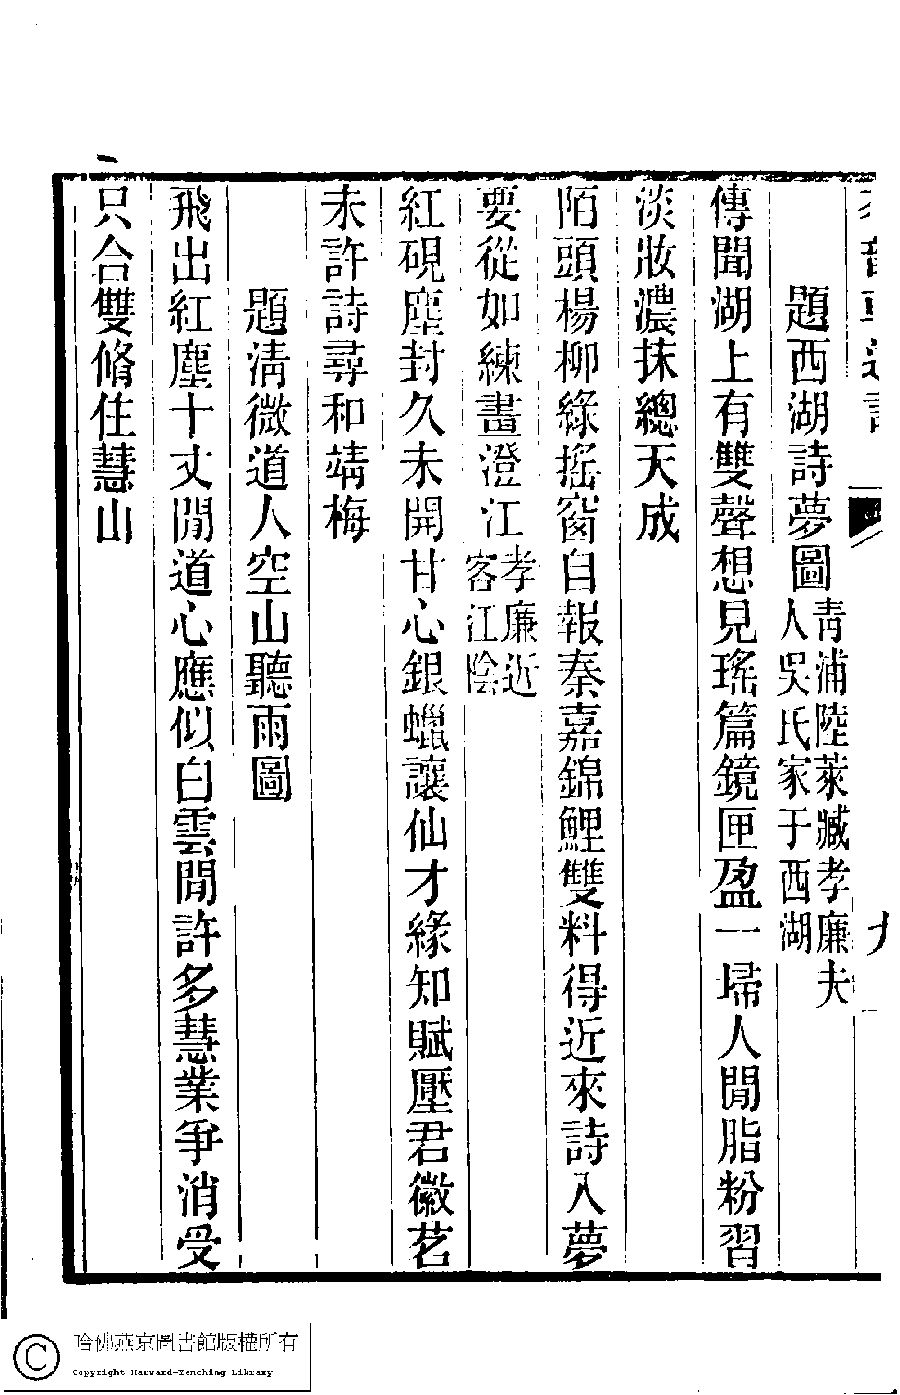 題西湖詩夢圖青浦陸萊臧孝廉夫人吳氏家于西湖
傳聞湖上有雙聲想見瑤篇鏡匣盈一埽人閒脂粉習
淡妝濃抹總天成
陌頭楊柳綠搖窗自報秦嘉錦鯉雙料得近來詩入夢
要從如練畫澄江孝廉近客江陰
紅硯塵封久未開甘心銀蠟讓仙才緣知賦壓君徽茗
未許詩尋和靖梅
題清微道人空山聽雨圖
飛出紅塵十丈閒道心應似白雲閒許多慧業爭消受
只合雙脩住慧山
哈佛燕京圖書館版權所有
Copyright Harvard-Yenching Library